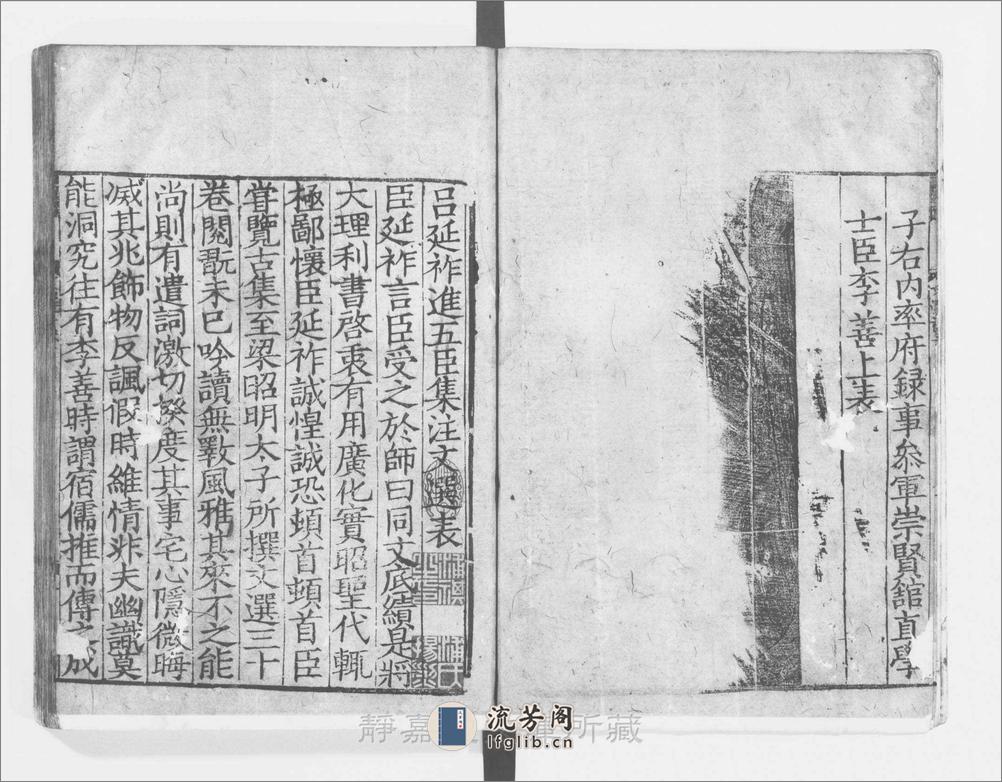 子右内率府録事叅軍崇賢舘直學
士臣李善上表
呂延祚進五臣集注文選表
臣延祚言臣受之於師曰同文底績是將
大理利書啓衷有用廣化實昭聖代輒
極鄙懷臣延祚誠惶誠恐頓首頓首臣
甞覽古集至梁昭明太子所撰文選三十
卷閱翫未已吟讀無斁風雅其來不之能
尚則有遣詞激切揆度其事宅心隱微晦
滅其兆飾物反諷假時維情非夫幽識莫
能洞究往有李善時謂宿儒推而傳之成
靜嘉 所藏
流芳阁
lfglib.cn